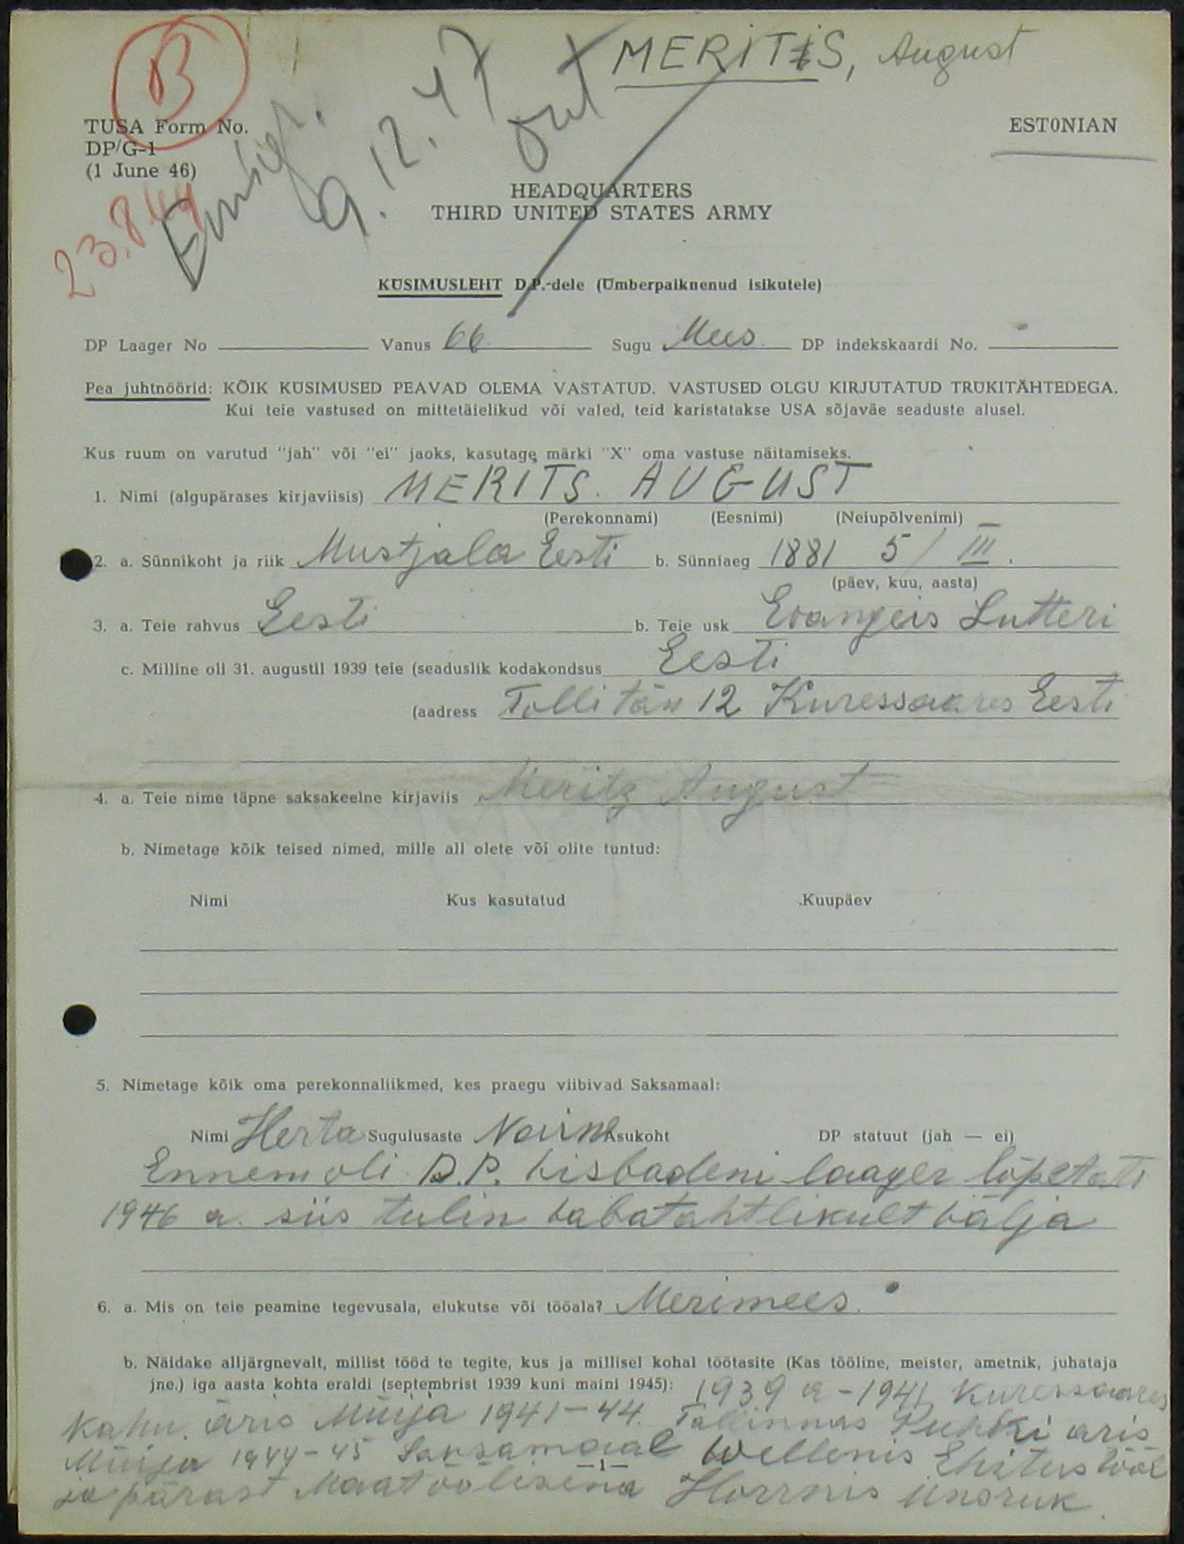 B
MERITIS, August
9.12.47
out
TUSA Form No.
DP/G-1
(1 June 46)
ESTONIAN
23.8.44
HEADQUARTERS
THIRD UNITED STATES ARMY
KÜSIMUSLEHT D.P.-dele (Ümberpaiknenud isikutele)
DP Laager No Vanus 66 Sugu Mees DP indekskaardi No.
Pea juhtnöörid: KÕIK KÜSIMUSED PEAVAD OLEMA VASTATUD. VASTUSED OLGU KIRJUTATUD TRÜKITÄHTEDEGA.
Kui teie vastused on mittetäielikud või valed, teid karistatakse USA sõjaväe seaduste alusel.
Kus ruum on varutud "jah" või "ei" jaoks, kasutage märki "X" oma vastuse näitamiseks.
1. Nimi (algupärases kirjaviisis) MERITS. AUGUST
(Perekonnami) (Eesnimi) (Neiupõlvenimi) —
2. a. Sünnikoht ja riik Mustjala Eesti b. Sünniaeg 1881 5/III.
(päev, kuu, aasta)
3. a. Teie rahvus Eesti b. Teie usk Evangeis Lutteri
c. Milline oli 31. augustil 1939 teie (seaduslik kodakondsus Eesti
(aadress Tolli tän 12 Kuressaares Eesti
4. a. Teie nime täpne saksakeelne kirjaviis Meritz August
b. Nimetage kõik teised nimed, mille all olete või olite tuntud:
Nimi Kus kasutatud Kuupäev
5. Nimetage kõik oma perekonnaliikmed, kes praegu viibivad Saksamaal:
Nimi Herta Sugulusaste Naine Asukoht DP statuut (jah — ei)
Ennem oli D.P. Visbadeni laager lõpetati
1946 a. siis tulin vabatahtlikult välja
6. a. Mis on teie peamine tegevusala, elukutse või tööala? Merimees.
b. Näidake alljärgnevalt, millist tööd te tegite, kus ja millisel kohal töötasite (Kas tööline, meister, ametnik, juhataja
jne.) iga aasta kohta eraldi (septembrist 1939 kuni maini 1945): 1939 a - 1941 Kuressaares
Kahn. äris Müüja 1941-44. Tallinnas Puhki äris
Müüja 1944-45 Saksamaal Wellenis Ehitus tööl
—1—
ja pärast Maatöölisena Horrnis